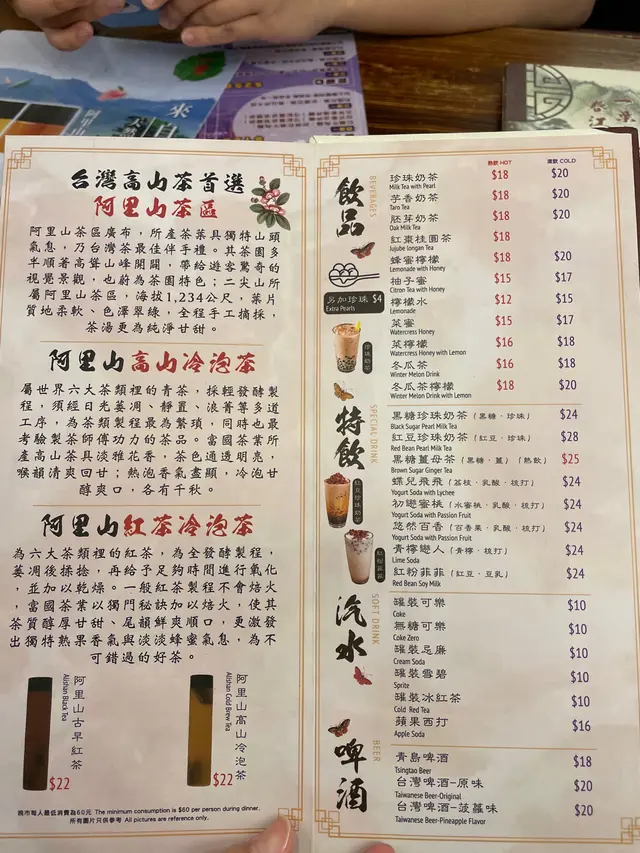 台灣高山茶首選
阿里山茶區
阿里山茶區廣布，所產茶葉具獨特山頭
氣息，乃台灣茶最佳伴手禮。其茶園多
半順著高聳山峰開闢，帶給遊客驚奇的
視覺景觀，也蔚為茶園特色；二尖山所
屬阿里山茶區，海拔1,234公尺，葉片
質地柔軟、色澤翠綠，全程手工摘採，
茶湯更為純淨甘甜。
阿里山高山冷泡茶
屬世界六大茶類裡的青茶，採輕發酵製
程，須經日光萎凋、靜置、浪菁等多道
工序，為茶類製程最為繁瑣，同時也最
考驗製茶師傅功力的茶品。富國茶業所
產高山茶具淡雅花香，茶色通透明亮，
喉韻清爽回甘；熱泡香氣盡顯，冷泡甘
醇爽口，各有千秋。
阿里山紅茶冷泡茶
為六大茶類裡的紅茶，為全發酵製程，
萎凋後揉捻，再給予足夠時間進行氧化
，並加以乾燥。一般紅茶製程不會焙火
，富國茶業以獨門秘訣加以焙火，使其
茶質醇厚甘甜、尾韻鮮爽順口，更激發
出獨特熟果香氣與淡淡蜂蜜氣息，為不
可錯過的好茶。
阿里山古早紅茶
Alishan Black Tea
$22
阿里山高山冷泡茶
Alishan Cold Brew Tea
$22
晚市每人最低消費為60元 The minimum consumption is $60 per person during dinner.
所有圖片只供參考 All pictures are reference only.
熱飲 HOT 凍飲 COLD
飲品
BEVERAGES
珍珠奶茶 $18 $20
Milk Tea with Pearl
芋香奶茶 $18 $20
Taro Tea
胚芽奶茶 $18 $20
Oak Milk Tea
紅棗桂圓茶 $18
Jujube longan Tea
蜂蜜檸檬 $18 $20
Lemonade with Honey
柚子蜜 $15 $17
Citron Tea with Honey
檸檬水 $12 $15
Lemonade
菜蜜 $15 $17
Watercress Honey
菜檸檬 $16 $18
Watercress Honey with Lemon
冬瓜茶 $16 $18
Winter Melon Drink
冬瓜茶檸檬 $18 $20
Winter Melon Drink with Lemon
另加珍珠 $4
Extra Pearls
珍珠奶茶
特飲
SPECIAL DRINK
黑糖珍珠奶茶（黑糖．珍珠） $24
Black Sugar Pearl Milk Tea
紅豆珍珠奶茶（紅豆．珍珠） $28
Red Bean Pearl Milk Tea
黑糖薑母茶（黑糖．薑）（熱飲） $25
Brown Sugar Ginger Tea
蝶兒飛飛（荔枝．乳酸．梳打） $24
Yogurt Soda with Lychee
初戀蜜桃（水蜜桃．乳酸．梳打） $24
Yogurt Soda with Passion Fruit
悠然百香（百香果．乳酸．梳打） $24
Yogurt Soda with Passion Fruit
青檸戀人（青檸．梳打） $24
Lime Soda
紅粉菲菲（紅豆．豆乳） $24
Red Bean Soy Milk
紅豆珍珠奶茶
紅粉菲菲
汽水
SOFT DRINK
罐裝可樂 $10
Coke
無糖可樂 $10
Coke Zero
罐裝忌廉 $10
Cream Soda
罐裝雪碧 $10
Sprite
罐裝冰紅茶 $10
Cold Red Tea
蘋果西打 $16
Apple Soda
啤酒
BEER
青島啤酒 $18
Tsingtao Beer
台灣啤酒-原味 $20
Taiwanese Beer-Original
台灣啤酒-菠蘿味 $20
Taiwanese Beer-Pineapple Flavor